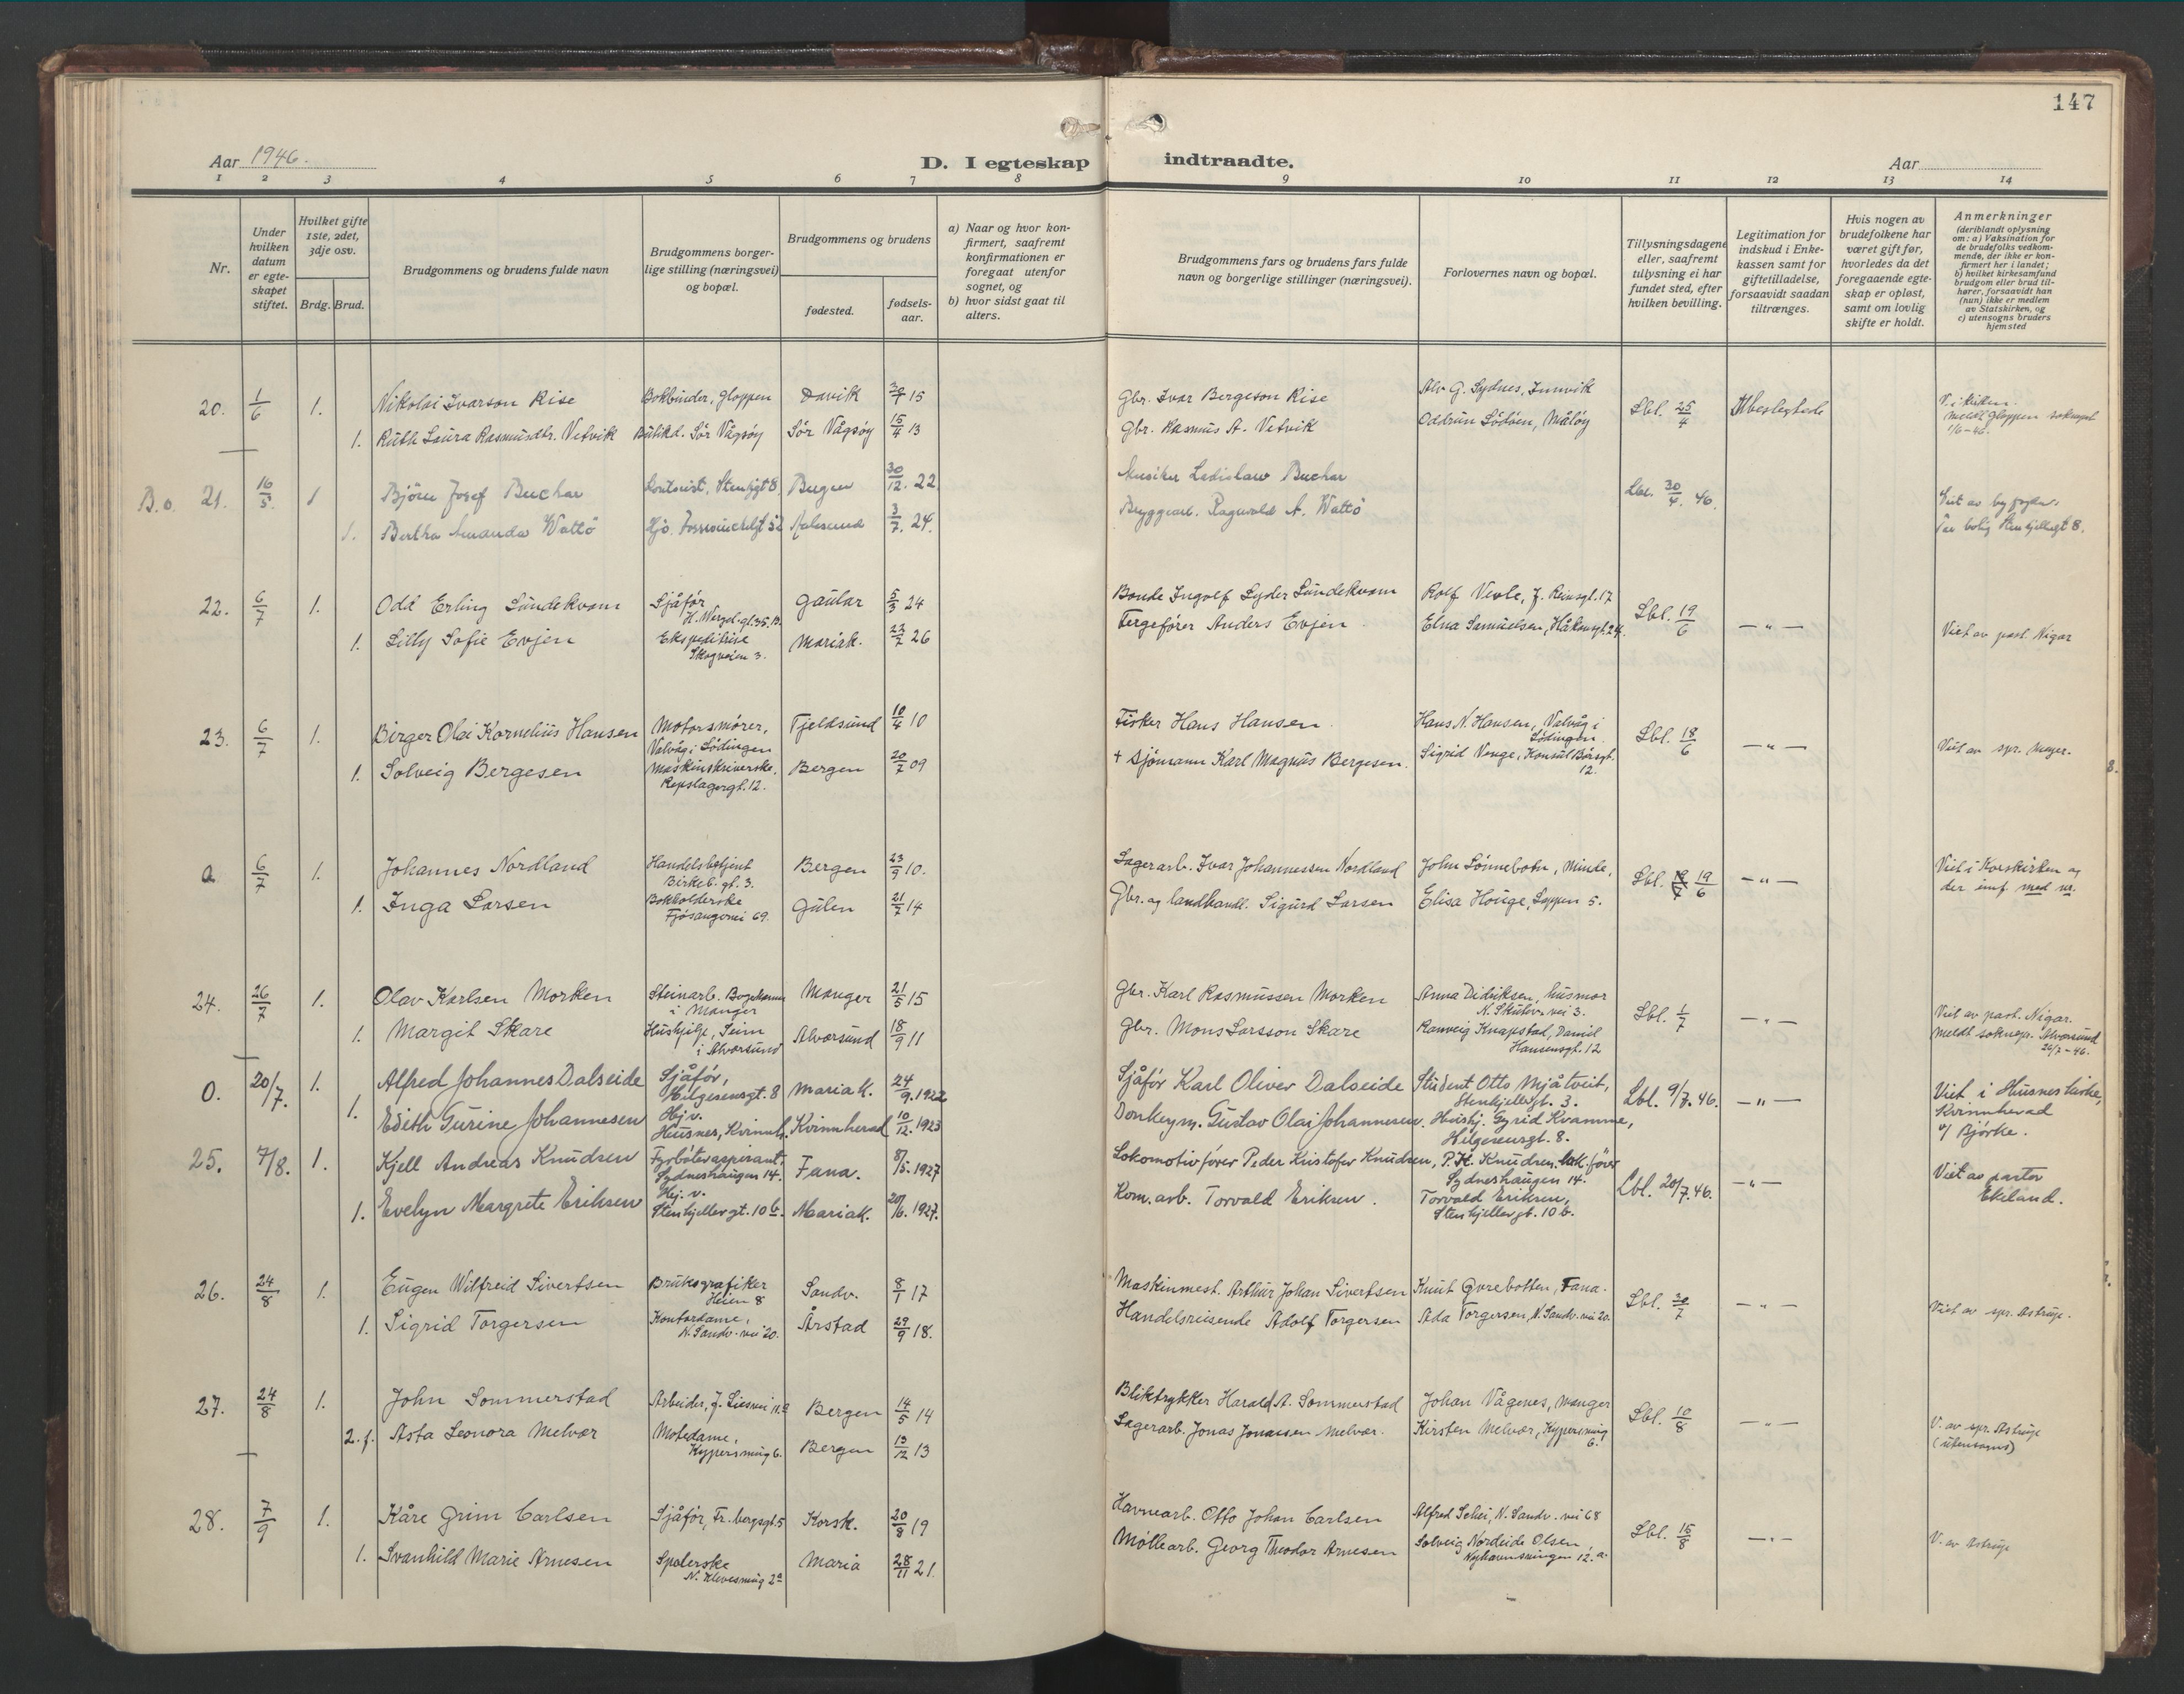 147
Aar 1946.
D. I egteskap indtraadte.
Aar
1 2 3 4 5 6 7 8 9 10 11 12 13 14
Nr.
Under hvilken datum er egteskapet stiftet.
Hvilket gifte 1ste, 2det, 3dje osv.
Brdg. Brud.
Brudgommens og brudens fulde navn
Brudgommens borgerlige stilling (næringsvei) og bopæl.
Brudgommens og brudens
fødested.
fødsels-aar.
a) Naar og hvor konfirmert, saafremt konfirmationen er foregaat utenfor sognet, og
b) hvor sidst gaat til alters.
Brudgommens fars og brudens fars fulde navn og borgerlige stillinger (næringsvei).
Forlovernes navn og bopæl.
Tillysningsdagene eller, saafremt tillysning ei har fundet sted, efter hvilken bevilling.
Legitimation for indskud i Enkekassen samt for giftetilladelse, forsaavidt saadan tiltrænges.
Hvis nogen av brudefolkene har været gift før, hvorledes da det foregaaende egteskap er opløst, samt om lovlig skifte er holdt.
Anmerkninger
(deriblandt oplysning om: a) Vaksination for de brudefolks vedkommende, der ikke er konfirmert her i landet; b) hvilket kirkesamfund brudgom eller brud tilhører, forsaavidt han (hun) ikke er medlem av Statskirken, og c) utensogns bruders hjemsted
20. 1/6 1. Nikolai Ivarson Rise Bokbinder, Gloppen Davik 15 Gbr. Ivar Bergeson Rise Alv G. Sydnes, Innvik Lbl. 25/4 Ubeslegtede V. i kirken.
1. Ruth Laura Rasmusdtr. Vetvik Butikd. Sør Vågsøy Sør Vågsøy 15/4 13 Gbr. Rasmus A. Vetvik Oddrun Lödöen, Måløy meldt Gloppen sokneprest 1/6-46.
B.o. 21. 16/5. 1 Björn Josef Buchar Kontorist, Stenkjgt 8 Bergen 30/12. 22 Musiker Ledislaw Buchar Lbl. 30/4. 46. Viet av byfogden.
1. Bertha Amanda Wattö Aalesund 3/7. 24. Bryggearb. Ragnvald A. Wattö Før bolig Stenkjellergt 8.
22. 6/7 1. Odd Erling Sundekvam Sjåfør H. Wergel.gt. 35.B. Gaular 5/3 24 Bonde Ingolf Lyder Sundekvam Rolf Vevle, J. Reinsgt. 17 Lbl. 19/6 — " —
1. Lilly Sofie Evjen Ekspeditrise Skogveien 3. Mariak. 23/7 26 Fergefører Anders Evjen Elna Samuelsen, Håkonsgt. 24. Viet av past. Nigar
23. 6/7 1. Birger Olai Kornelius Hansen Motorsmører, Valvåg i Lödingen Tjeldsund 10/4 10 Fisker Hans Hansen Hans N. Hansen, Valvåg i Lödingen. Lbl. 18/6 — " —
1. Solveig Bergesen Maskinskriverske. Repslagergt. 12. Bergen 20/7 09 + Sjömann Karl Magnus Bergesen. Sigrid Venge, Konsul Börsgt. 12. Viet av spr. Meyer.
a 6/7 1. Johannes Nordland Handelsbetjent Birkeb. gt. 3. Bergen 23/9 10. Lagerarb. Ivar Johannessen Nordland John Lönnebotn, Minde, Lbl. 19/6 — " — Viet i Korskirken og
1. Inga Larsen Bokholderske Fjösangervei 69. Gulen 21/7 14 Gbr. og landhandl. Sigurd Larsen Elisa Houge, Lappen 5. der innf. med nr.
24. 26/7 1. Olav Karlsen Morken Steinarb. i Manger Manger 21/5 15 Gbr. Karl Rasmussen Morken Anna Didriksen, husmor N. Skutev. vei 3. Lbl. 1/7 — " — Viet av past. Nigar.
1. Margit Skare Hushjelp, Seim i Alversund Alversund 18/9 11 Gbr. Mons Larsson Skare Ranveig Knapstad, Daniel Hansensgt. 12 meldt soknepr. Alversund 26/7-46.
O. 20/7. 1. Alfred Johannes Dalseide Sjåför, Helgesensgt. 8 Mariak. 24/9. 1922 Sjåför Karl Oliver Dalseide Student Otto Mjåtveit, Stenkjellergt. 3. Lbl. 9/7. 46. — " — Viet i Husnes kirke,
1. Edith Gurine Johannesen Hj.v. Husnes, Kvinnh. Kvinnherad 10/12. 1923 Donkeym. Gustav Olai Johannesen. Hushj. Gyrid Kvamme, Helgesensgt. 8. Kvinnherad v/ Bjørke.
25. 7/8. 1. Kjell Andreas Knudsen Fyrböteraspirant, Sydneshaugen 14. Fana. 8/5. 1927 Lokomotivfører Peder Kristofer Knudsen, P.K. Knudsen, lok.förer Sydneshaugen 14. Lbl. 20/7. 46. — " — Viet av pastor
1. Evelyn Margrete Eriksen Hj. v. Stenkjellergt. 10 b. Mariak. 20/6. 1927. Kom. arb. Torvald Eriksen. Torvald Eriksen, Stenkjellergt. 10 b. Ekeland.
26. 24/8 1. Eugen Wilfreid Sivertsen Bruksgrafiker Heien 8 Sandv. 8/1 17 Maskinmest. Arthur Johan Sivertsen Knut Gverebotten, Fana. Lbl. 30/7 — " —
1. Sigrid Torgersen Kontordame, N. Sandv. vei 20. Årstad 29/9 18. Handelsreisende Adolf Torgersen Ada Torgersen, N. Sandv. vei 20. Viet av spr. Astrup.
27. 24/8 1. John Sommerstad Arbeider, J. Liesvei 11 a Bergen 14/5 14 Bliktrykker Harald A. Sommerstad Johan Vågenes, Manger Lbl. 10/8 — " —
2. f. Asta Leonora Melvær Motedame, Kypersmug 6. Bergen 13/12 13 Lagerarb. Jonas Jonassen Melvær. Kirsten Melvær, Kypersmug 6. V. av spr. Astrup (utensogns)
28. 7/9 1. Kåre Grim Carlsen Sjåför, Fr. bergsgt. 5 Korsk. 20/8 19 Havnearb. Otto Johan Carlsen Alfred Schei, N. Sandv. vei 68 Lbl. 15/8 — " —
1. Svanhild Marie Arnesen Spolerske N. Klevesmug 2a Maria 28/11 21. Möllearb. Georg Theodor Arnesen Solveig Nordeide Olsen, Nyhavnsveien 12.a. V. av Astrup